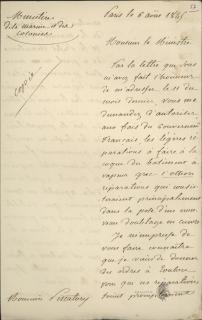 Ministère
de la marine et des
colonies
Copie
Paris le 6 août 1845
Monsieur le Ministre
Par la lettre que vous
m'avez fait l'honneur
de m'adresser le 11 du
mois dernier, vous me
demandez d'autoriser
aux frais du Gouvernement
français les légères ré
parations à faire à la
coque du bâtiment à
vapeur
réparations qui consis
teraient principalement
dans la pose d'un nou
veau doublage en cuivre
Je m'empresse de
vous faire connaître
que je viens de donner
des ordres à Toulon
pour que ces réparations
soient promptement
Monsieur Piscatory